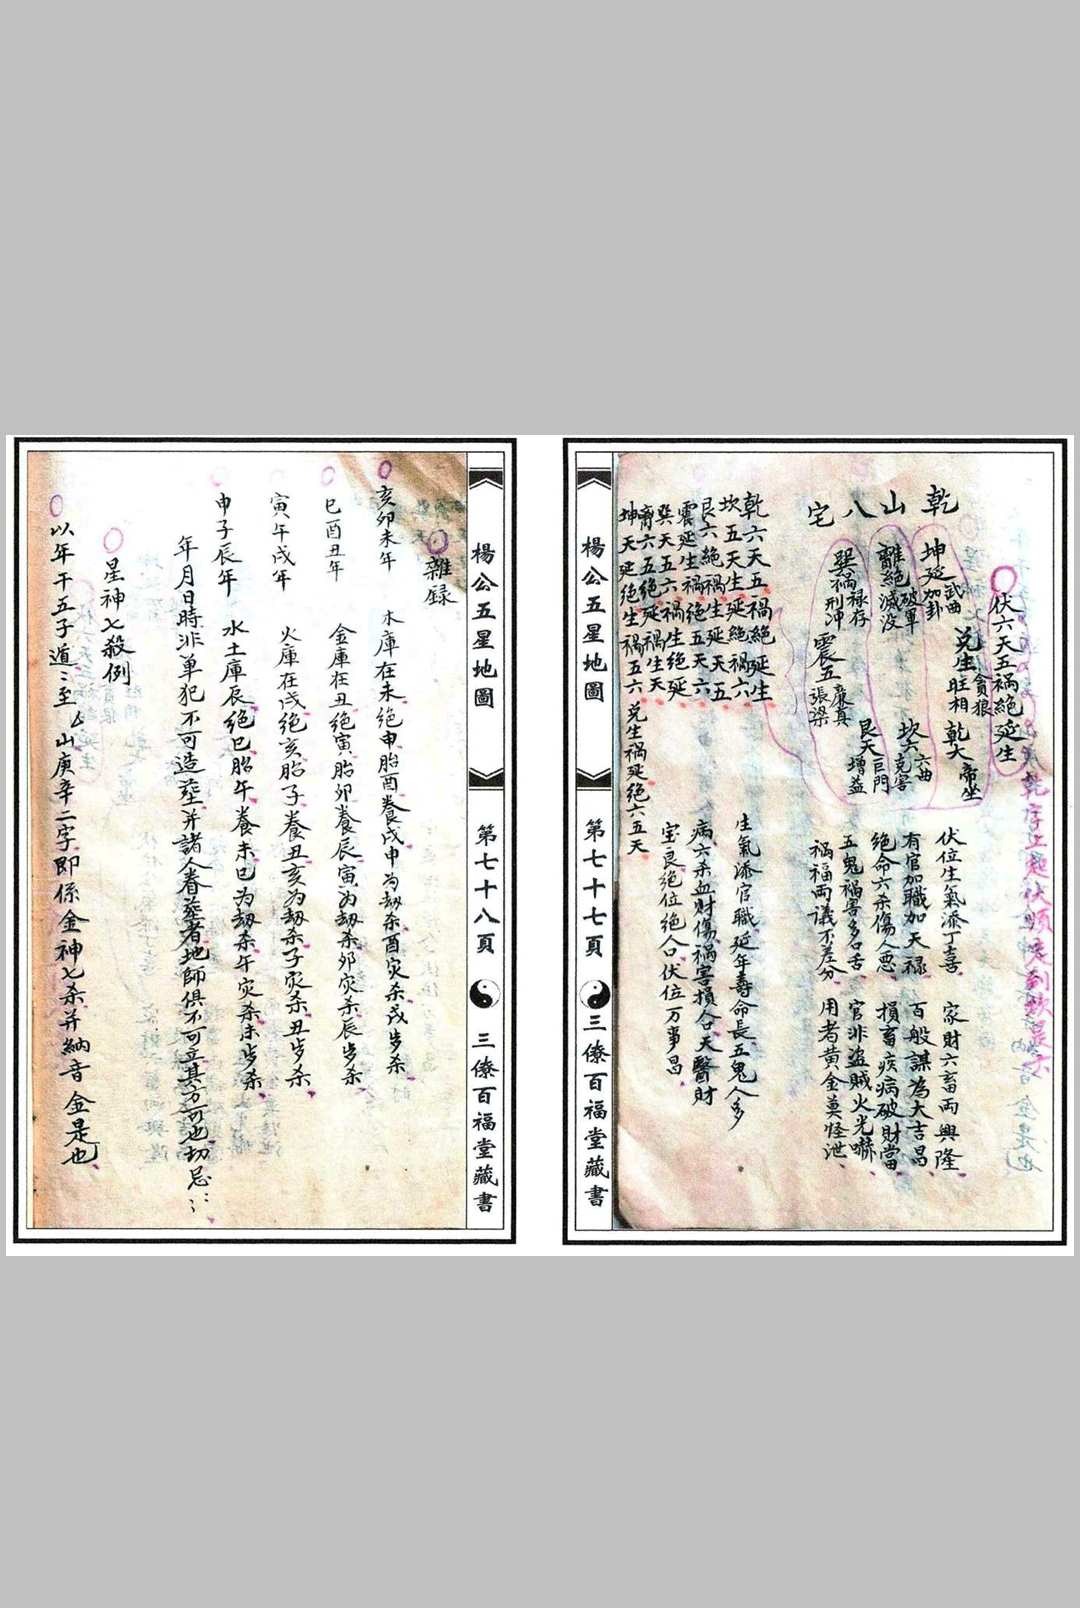 乾山八宅
伏六天五禍絕延生
坤延武曲加卦
兌生貪狼旺相
乾六帝坐
離絕破軍滅没
坎六六曲克害
巽禍禄存刑冲
震五廉真張梁
艮天巨門增益
乾六天五禍絕延生
坎五天生延絕禍六
艮六絕禍生延天五
震延生禍絕五天六
巽天五六禍生絕延
離六五絕延禍生天
坤天延絕生禍五六
兌生禍延絕六五天
伏位生氣添丁喜 家財六畜両興隆
有官加職加天禄 百般謀為大吉昌
絕命六杀傷人悪 損畜疾病破財當
五鬼禍害多口舌 官非盗賊火光嚇
禍福両議不差分 用者黄金莫怪泄
生氣添官職延年壽命長五鬼人多
病六杀血財傷禍害損人口天醫財
宝艮絕位絕人口伏位万事昌
楊公五星地圖
第七十七頁
三僚百福堂藏書
楊公五星地圖
第七十八頁
三僚百福堂藏書
雜録
亥卯未年 木庫在未絕申胎酉養戌申为劫杀酉灾杀戌歩杀
巳酉丑年 金庫在丑絕寅胎卯養辰寅为劫杀卯灾杀辰歩杀
寅午戌年 火庫在戌絕亥胎子養丑亥为劫杀子灾杀丑歩杀
申子辰年 水土庫辰絕巳胎午養未巳为劫杀午灾杀未歩杀
年月日時非单犯不可造塟并諸人眷塟者地師俱不可立其方可也切忌
星神七殺例
以年干五子道〻至山庚辛二字即係金神七杀并納音金是也